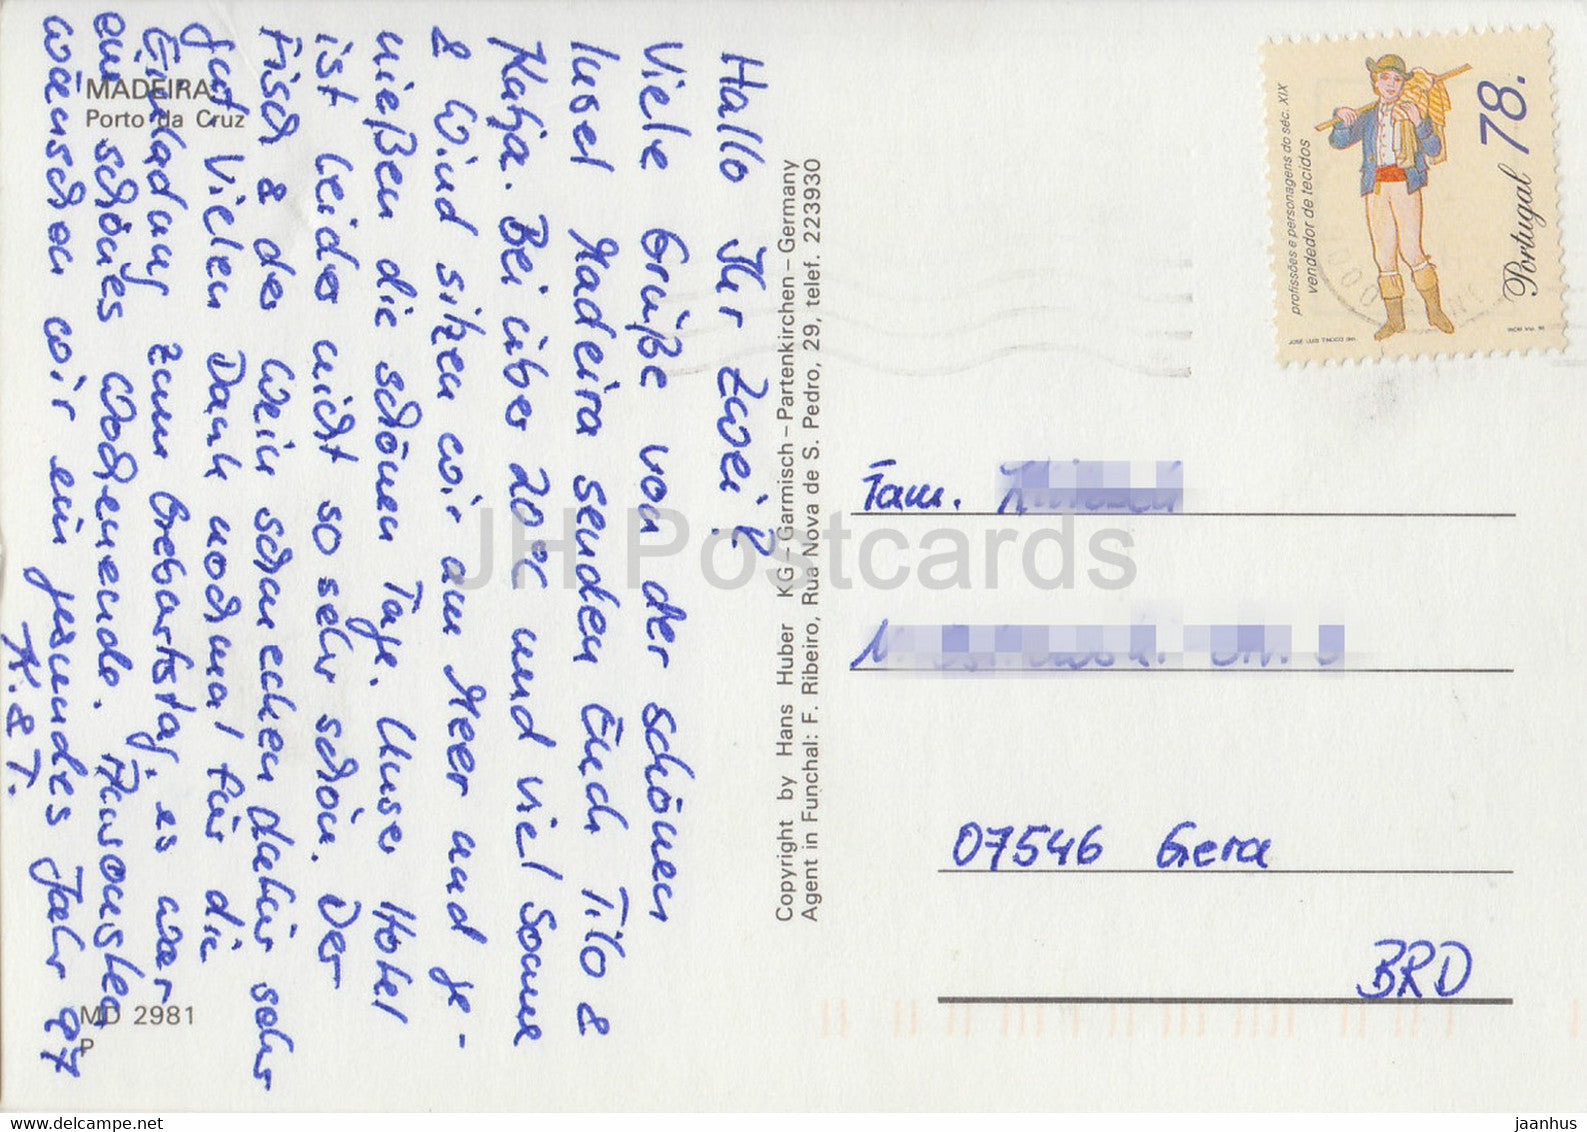 Hallo Ihr Zwei!
Viele Grüße von der schönen
Insel Madeira senden Euch Tilo &
Katja. Bei über 20°C und viel Sonne
& Wind sitzen wir am Meer und ge-
nießen die schönen Tage. Unser Hotel
ist leider nicht so sehr schön. Der
Fisch & der Wein schmecken dafür sehr
gut. Vielen Dank nochmal für die
Einladung zum Geburtstag, es war
ein schönes Wochenende. Ansonsten
wünschen wir ein gesundes Jahr 97
K. & T.
MADEIRA
Porto da Cruz
MD 2981
P
Copyright by Hans Huber KG - Garmisch - Partenkirchen - Germany
Agent in Funchal: F. Ribeiro, Rua Nova de S. Pedro, 29, telef. 223930
profissões e personagens do séc. XIX
vendedor de tecidos
Portugal 78.
JOSÉ LUIS TINOCO
Fam.
07546 Gera
BRD
JH Postcards
www.delcampe.net
jaanhus